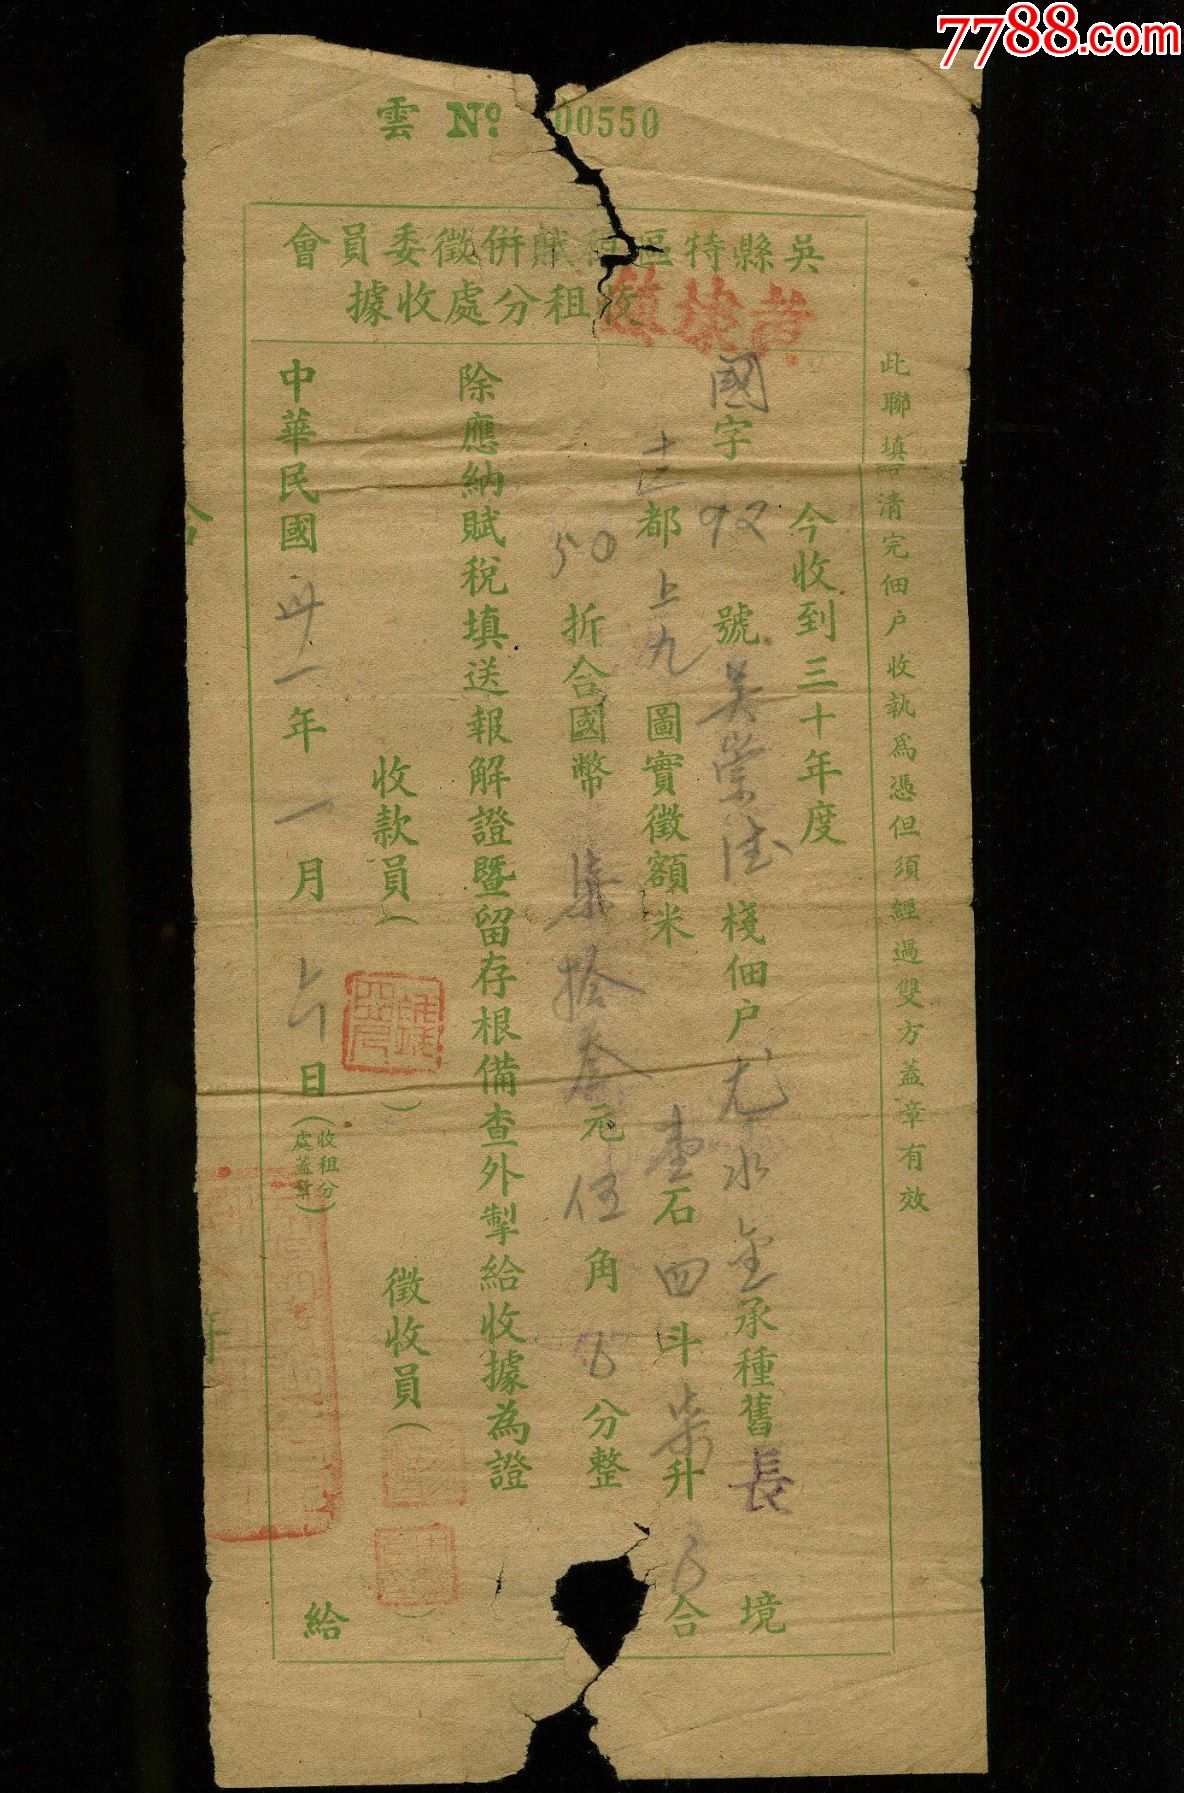 7788.com
雲 No. 00550
吳縣特區租賦併徵委員會
黃埭鎮收租分處收據
此聯填清完佃户收執爲憑但須經過雙方蓋章有效
今收到三十年度
國字 92 號吳榮德棧佃户尤水金承種舊長境
都上九圖實徵額米壹石四斗柒升合
50折合國幣柒拾叁元伍角分整
除應納賦稅填送報解證暨留存根備查外掣給收據為證
收款員（ ） 徵收員（ ）
中華民國卅一年一月日（收租分處蓋章） 給